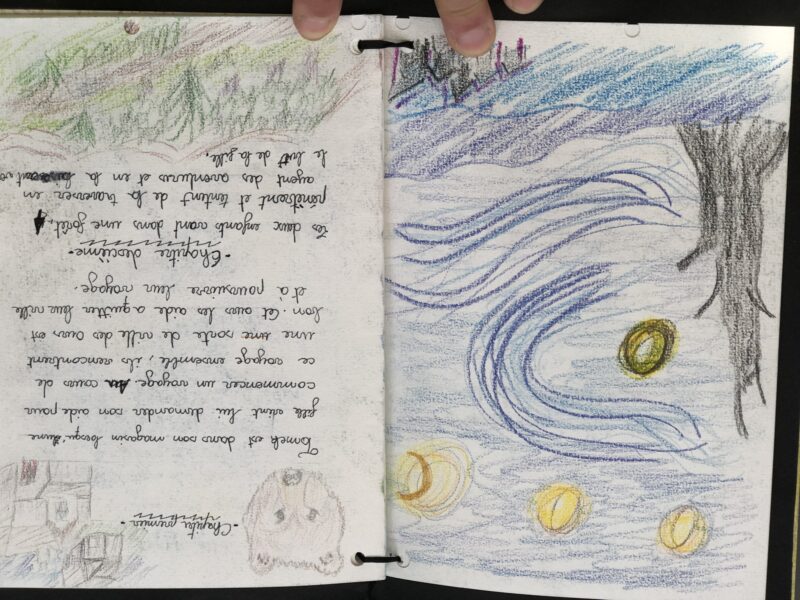 - Chapitre premier -
Tomek est dans son magasin lorsqu'une
fille vient lui demander son aide pour
commencer un voyage. Au cours de
ce voyage ensemble, ils rencontrent
une sorte de ville des Ours est
son. Cet ours les aide a quitter leur ville
et à poursuivre leur voyage.
- Chapitre deuxième -
Les deux enfants vont dans une forêt,
pénètrent et tentent de la traverser en
ayant des aventures et en la
le but de la fille.